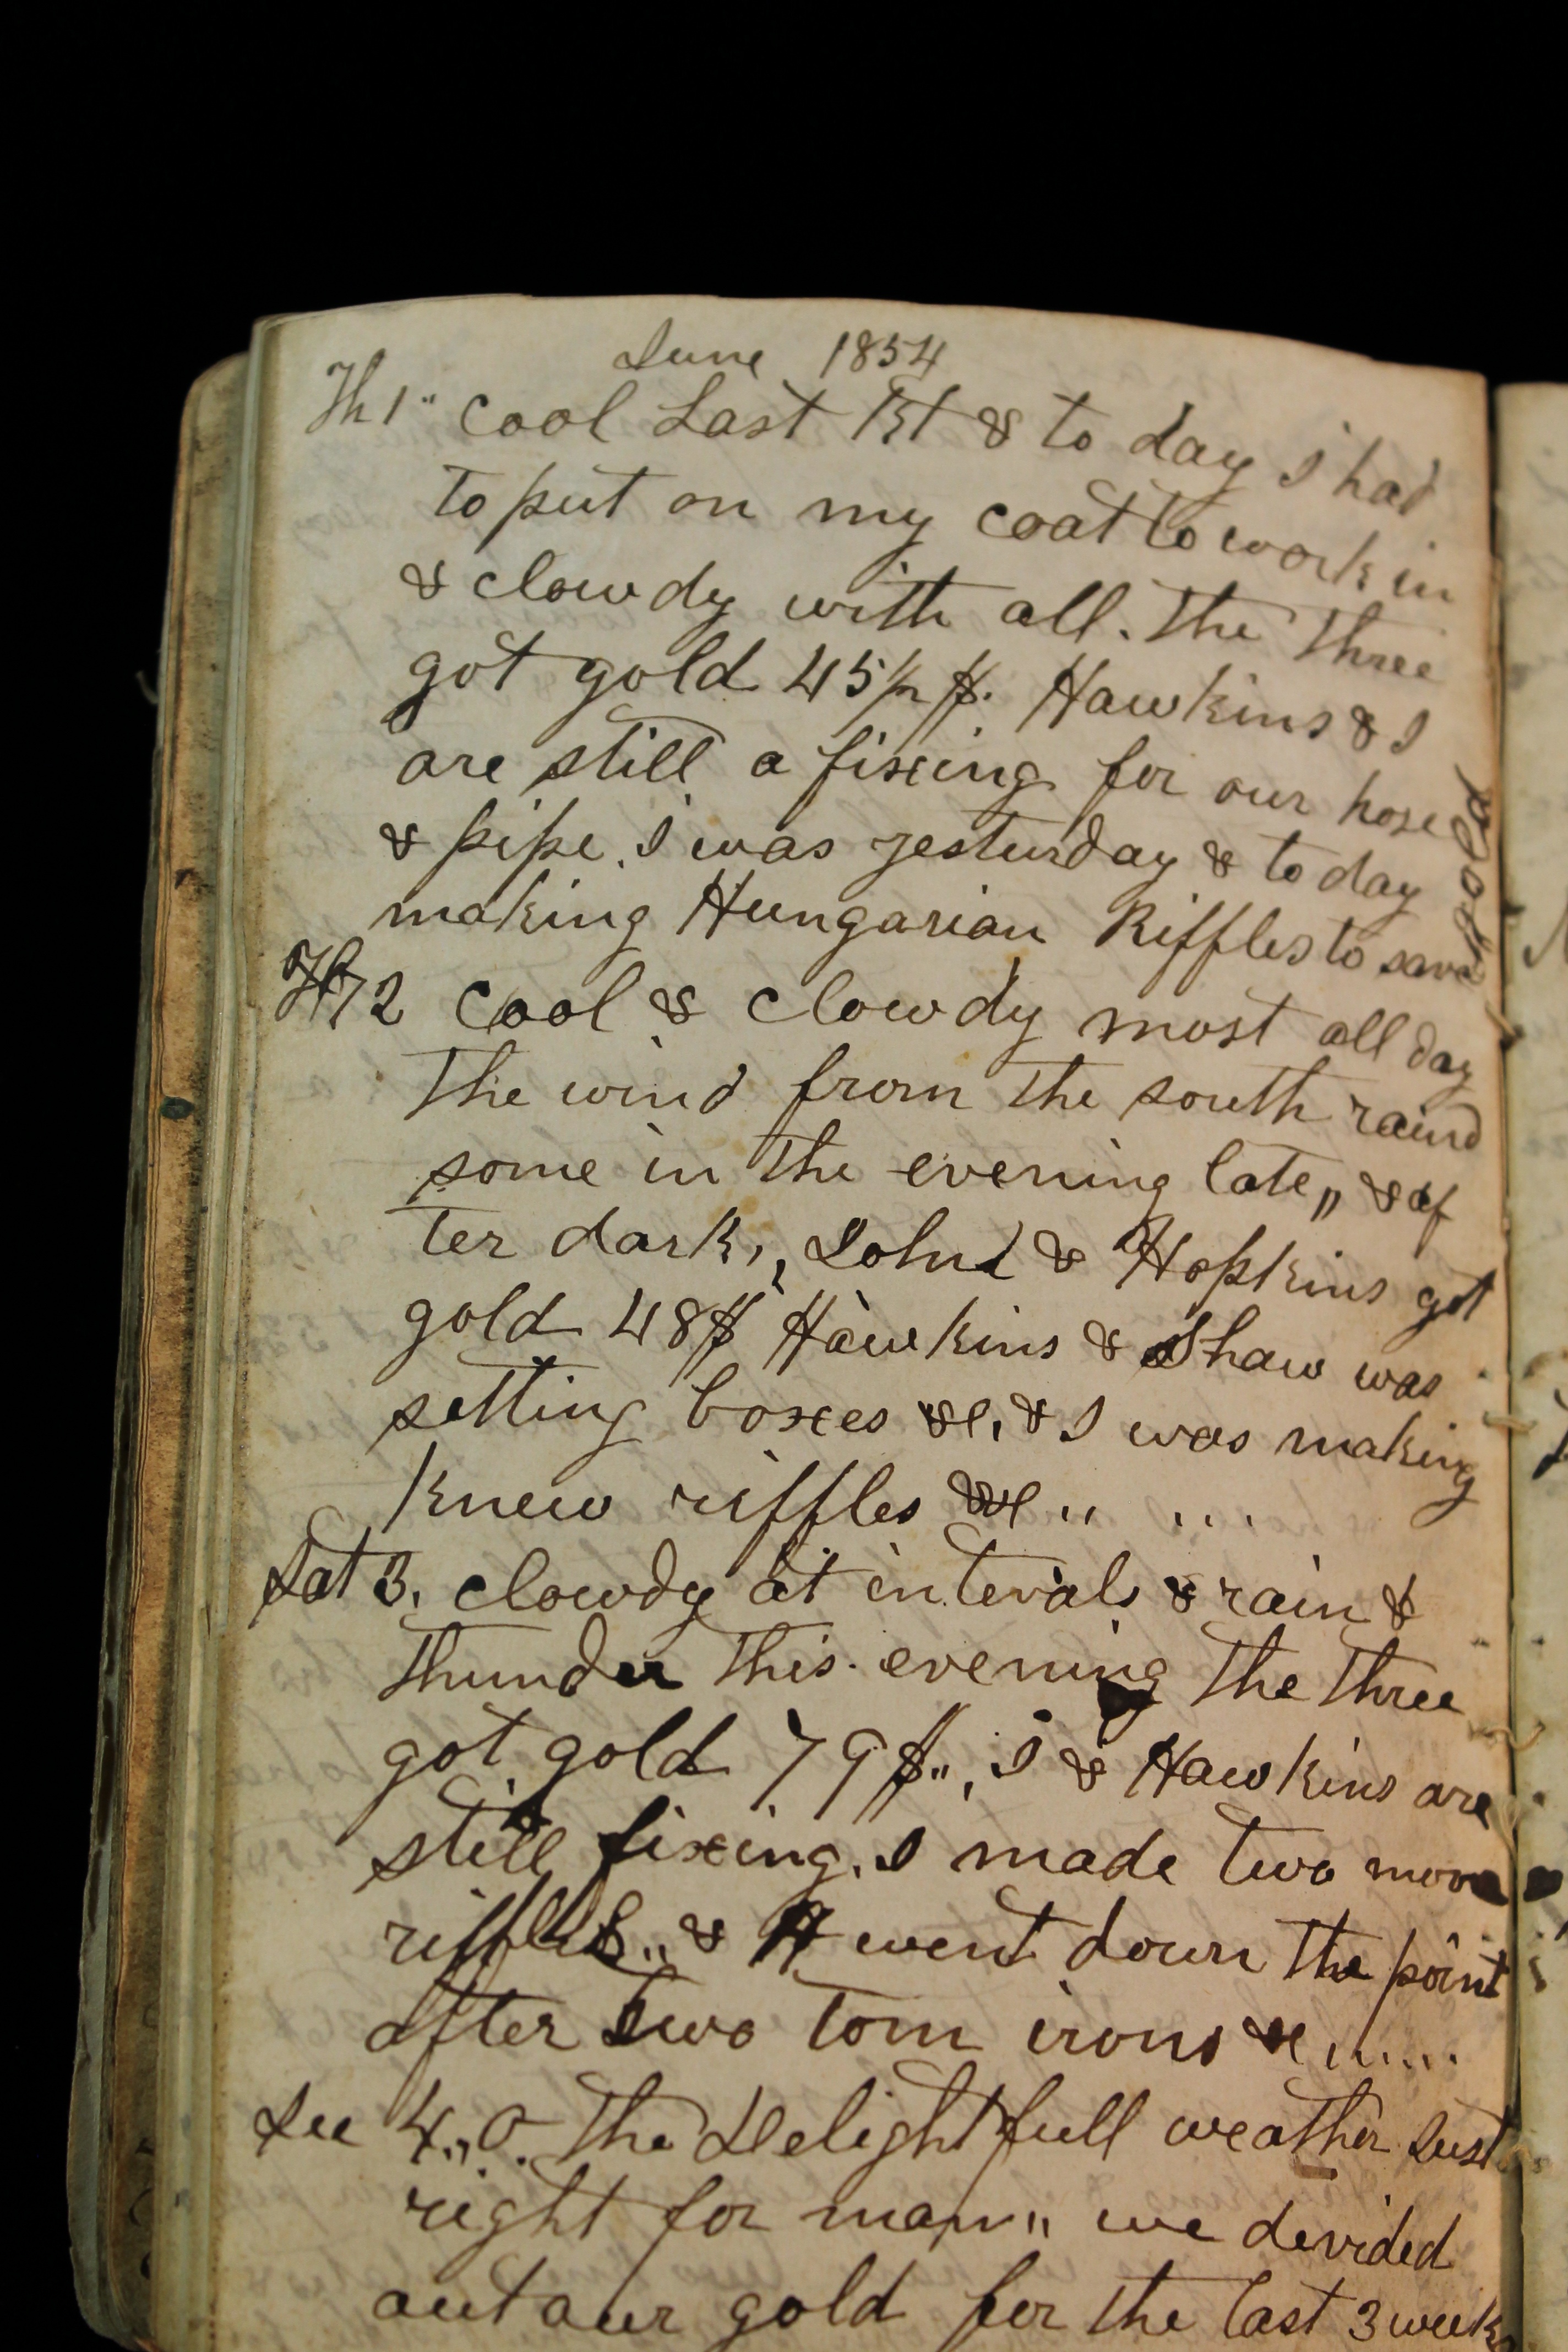 June 1854
Th 1" Cool Last & to day I had
to put on my coat to work in
& clowdy with all. The three
got gold 45 1/2 $. Hawkins & I
are still a fixing for our hose
& pipe. I was yesturday & to day
making Hungarian Riffles to save
gold
2 Cool & clowdy most all day
The wind from the south raind
some in the evening late,, & af
ter dark,, & Hopkins got
gold 48 $ Hawkins & Shaw was
setting boxes &c, & I was making
knew riffles &c " ...
Sat 3. clowdy at intervals & rain &
thunder this evening The three
got gold 79 $,,, I & Hawkins are
still fixing. I made two more
riffles,, & H went down the point
after two Tom irons &c ......
Su 4,, O. The Delightfull weather Just
right for man,, we devided
out our gold for the last 3 weeks